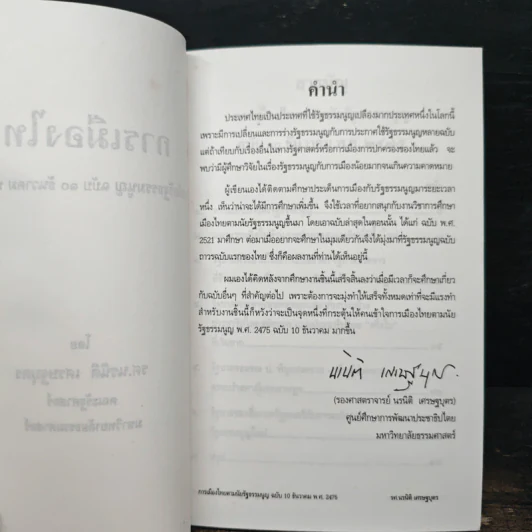 คำนำ
ประเทศไทยเป็นประเทศที่ใช้รัฐธรรมนูญเปลืองมากประเทศหนึ่งในโลกนี้
เพราะมีการเปลี่ยนและการร่างรัฐธรรมนูญกับการประกาศใช้รัฐธรรมนูญหลายฉบับ
แต่ถ้าเทียบกับเรื่องอื่นในทางรัฐศาสตร์หรือการเมืองการปกครองของไทยแล้ว จะ
พบว่ามีผู้ศึกษาวิจัยในเรื่องรัฐธรรมนูญกับการเมืองน้อยมากจนเกินความคาดหมาย
ผู้เขียนเองได้ติดตามศึกษาประเด็นการเมืองกับรัฐธรรมนูญมาระยะเวลา
หนึ่ง เห็นว่าน่าจะได้มีการศึกษาเพิ่มขึ้น จึงใช้เวลาที่อยากสนุกกับงานวิชาการศึกษา
เมืองไทยตามนัยรัฐธรรมนูญขึ้นมา โดยเอาฉบับล่าสุดในตอนนั้น ได้แก่ ฉบับ พ.ศ.
2521 มาศึกษา ต่อมาเมื่ออยากจะศึกษาในมุมเดียวกันจึงได้มุ่งมาที่รัฐธรรมนูญฉบับ
ถาวรฉบับแรกของไทย ซึ่งก็คือผลงานที่ท่านได้เห็นอยู่นี้
ผมเองได้คิดหลังจากศึกษางานชิ้นนี้เสร็จสิ้นลงว่าเมื่อมีเวลาก็จะศึกษาเกี่ยว
กับฉบับอื่นๆ ที่สำคัญต่อไป เพราะต้องการจะมุ่งทำให้เสร็จทั้งหมดเท่าที่จะมีแรงทำ
สำหรับงานชิ้นนี้ก็หวังว่าจะเป็นจุดหนึ่งที่กระตุ้นให้คนเข้าใจการเมืองไทยตามนัย
รัฐธรรมนูญ พ.ศ. 2475 ฉบับ 10 ธันวาคม มากขึ้น
นรนิติ เศรษฐบุตร
(รองศาสตราจารย์ นรนิติ เศรษฐบุตร)
ศูนย์ศึกษาการพัฒนาประชาธิปไตย
มหาวิทยาลัยธรรมศาสตร์
การเมืองไทยตามนัยรัฐธรรมนูญ ฉบับ 10 ธันวาคม พ.ศ. 2475
รศ.นรนิติ เศรษฐบุตร